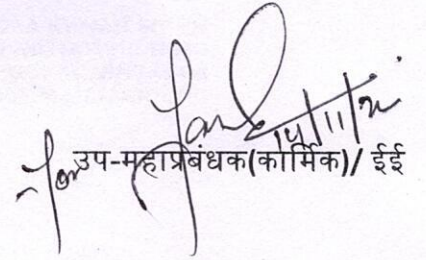 14/11/
उप-महाप्रबंधक(कार्मिक)/ ईई